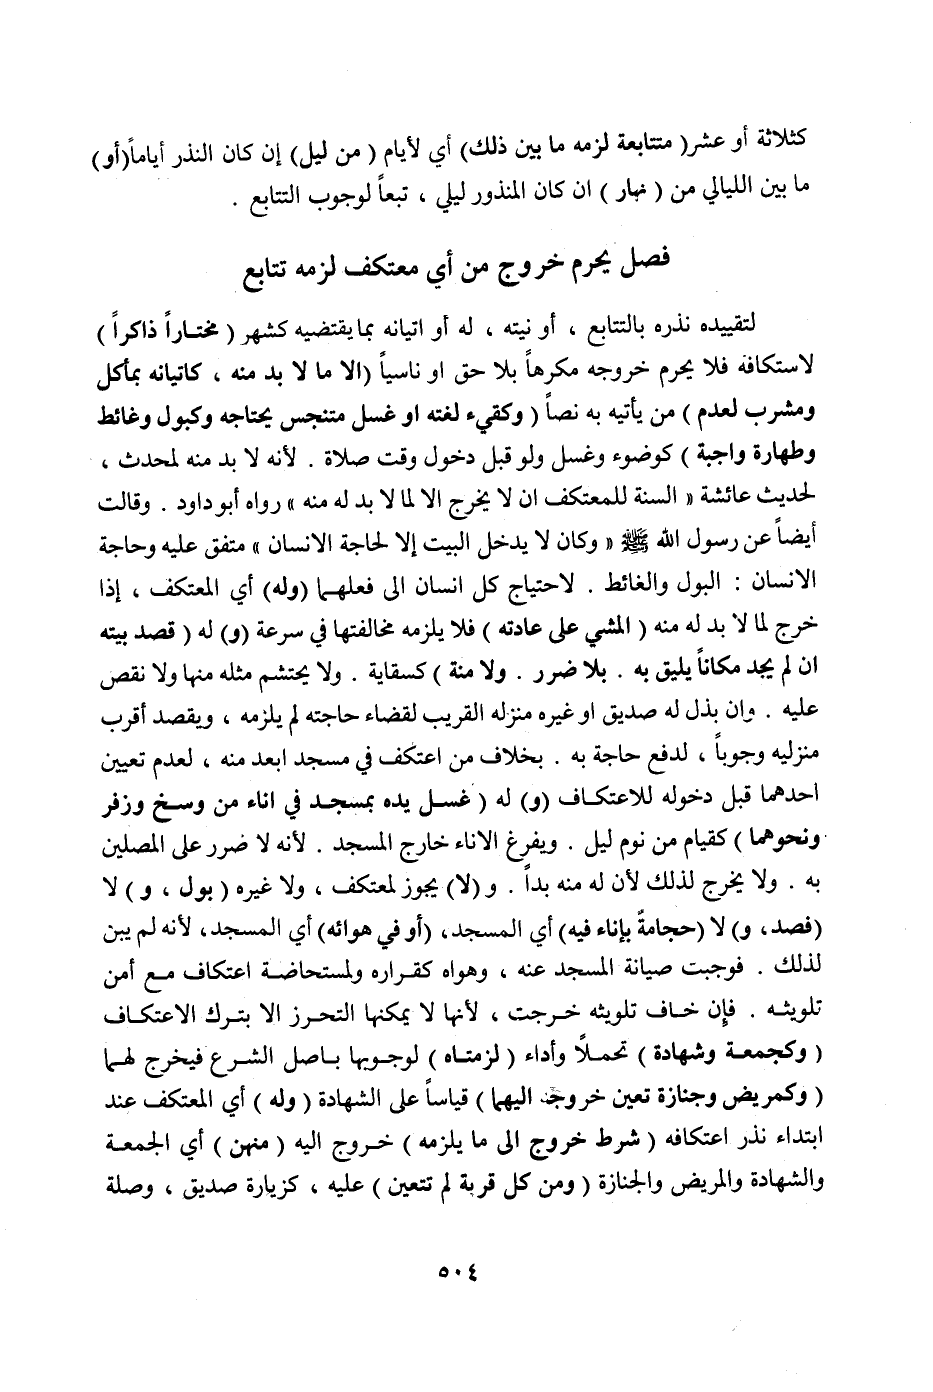 كثلاثة أو عشر( متتابعة لزمه ما بين ذلك) أي لأيام ( من ليل) إن كان النذر أياماً(أو)
ما بين الليالي من ( نهار ) ان كان المنذور ليلي ، تبعاً لوجوب التتابع .
فصل يحرم خروج من أي معتكف لزمه تتابع
لتقييده نذره بالتتابع ، أو نيته ، له أو اتيانه بما يقتضيه كشهر ( مختاراً ذاكراً )
لاستكافه فلا يحرم خروجه مكرهاً بلا حق او ناسياً (الا ما لا بد منه ، كاتيانه بمأكل
ومشرب لعدم ) من يأتيه به نصاً ( وكقيء لغته او غسل متنجس يحتاجه وكبول وغائط
وطهارة واجبة ) كوضوء وغسل ولو قبل دخول وقت صلاة . لأنه لا بد منه لمحدث ،
لحديث عائشة « السنة للمعتكف ان لا يخرج الا لما لا بد له منه » رواه أبو داود . وقالت
أيضاً عن رسول الله ﷺ « وكان لا يدخل البيت إلا لحاجة الانسان » متفق عليه وحاجة
الانسان : البول والغائط . لاحتياج كل انسان الى فعلهما (وله) أي المعتكف ، إذا
خرج لما لا بد له منه ( المشي على عادته ) فلا يلزمه مخالفتها في سرعة (و) له ( قصد بيته
ان لم يجد مكاناً يليق به . بلا ضرر . ولا منة ) كسقاية . ولا يحتشم مثله منها ولا نقص
عليه . وإن بذل له صديق او غيره منزله القريب لقضاء حاجته لم يلزمه ، ويقصد أقرب
منزليه وجوباً ، لدفع حاجة به . بخلاف من اعتكف في مسجد ابعد منه ، لعدم تعيين
احدهما قبل دخوله للاعتكاف (و) له ( غسل يده بمسجد في اناء من وسخ وزفر
ونحوهما ) كقيام من نوم ليل . ويفرغ الاناء خارج المسجد . لأنه لا ضرر على المصلين
به . ولا يخرج لذلك لأن له منه بداً . و(لا) يجوز لمعتكف ، ولا غيره ( بول ، و ) لا
(فصد، و) لا (حجامةً بإناء فيه) أي المسجد، (أو في هوائه) أي المسجد، لأنه لم يبن
لذلك . فوجبت صيانة المسجد عنه ، وهواه كقراره ولمستحاضة اعتكاف مع أمن
تلويثه . فإن خاف تلويثه خرجت ، لأنها لا يمكنها التحرز الا بترك الاعتكاف
( وكجمعة وشهادة ) تحملاً وأداء ( لزمتاه ) لوجوبها باصل الشرع فيخرج لهما
( وكمريض وجنازة تعين خروجه اليهما ) قياساً على الشهادة ( وله ) أي المعتكف عند
ابتداء نذر اعتكافه ( شرط خروج الى ما يلزمه ) خروج اليه ( منهن ) أي الجمعة
والشهادة والمريض والجنازة ( ومن كل قربة لم تتعين ) عليه ، كزيارة صديق ، وصلة
٥٠٤